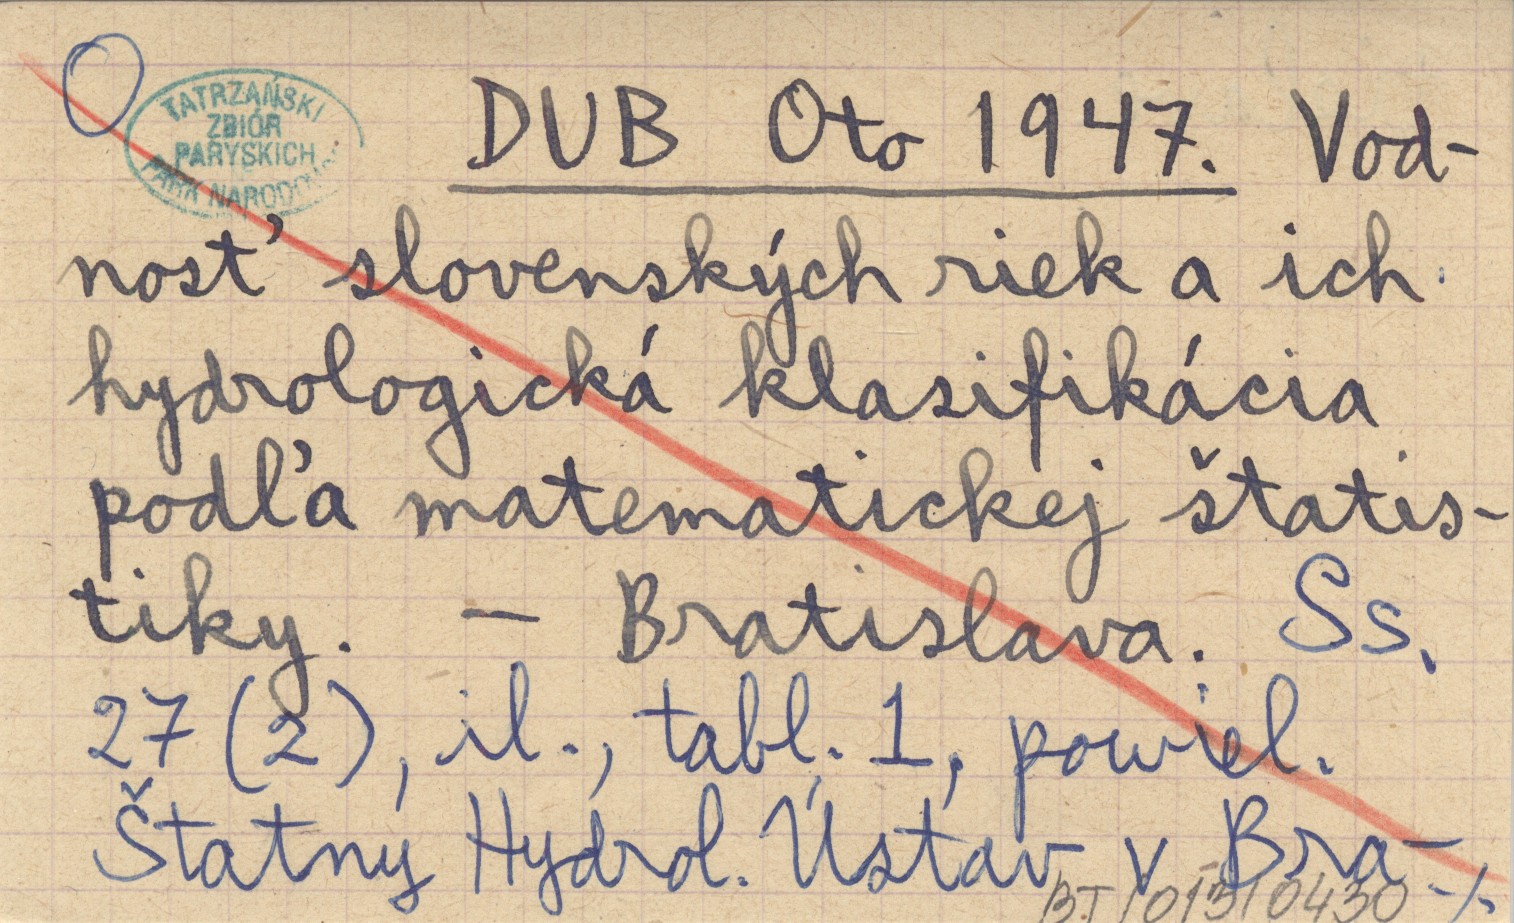 TATRZAŃSKI
ZBIÓR
PARYSKICH
PARK NARODOWY
DUB Oto 1947. Vod-
nosť slovenských riek a ich
hydrologická klasifikácia
podľa matematickej štatis-
tiky. - Bratislava. Ss.
27 (2), il., tabl. 1, powiel.
Štatný Hydrol. Ústav v Bra-
BT/013/0430 -/.